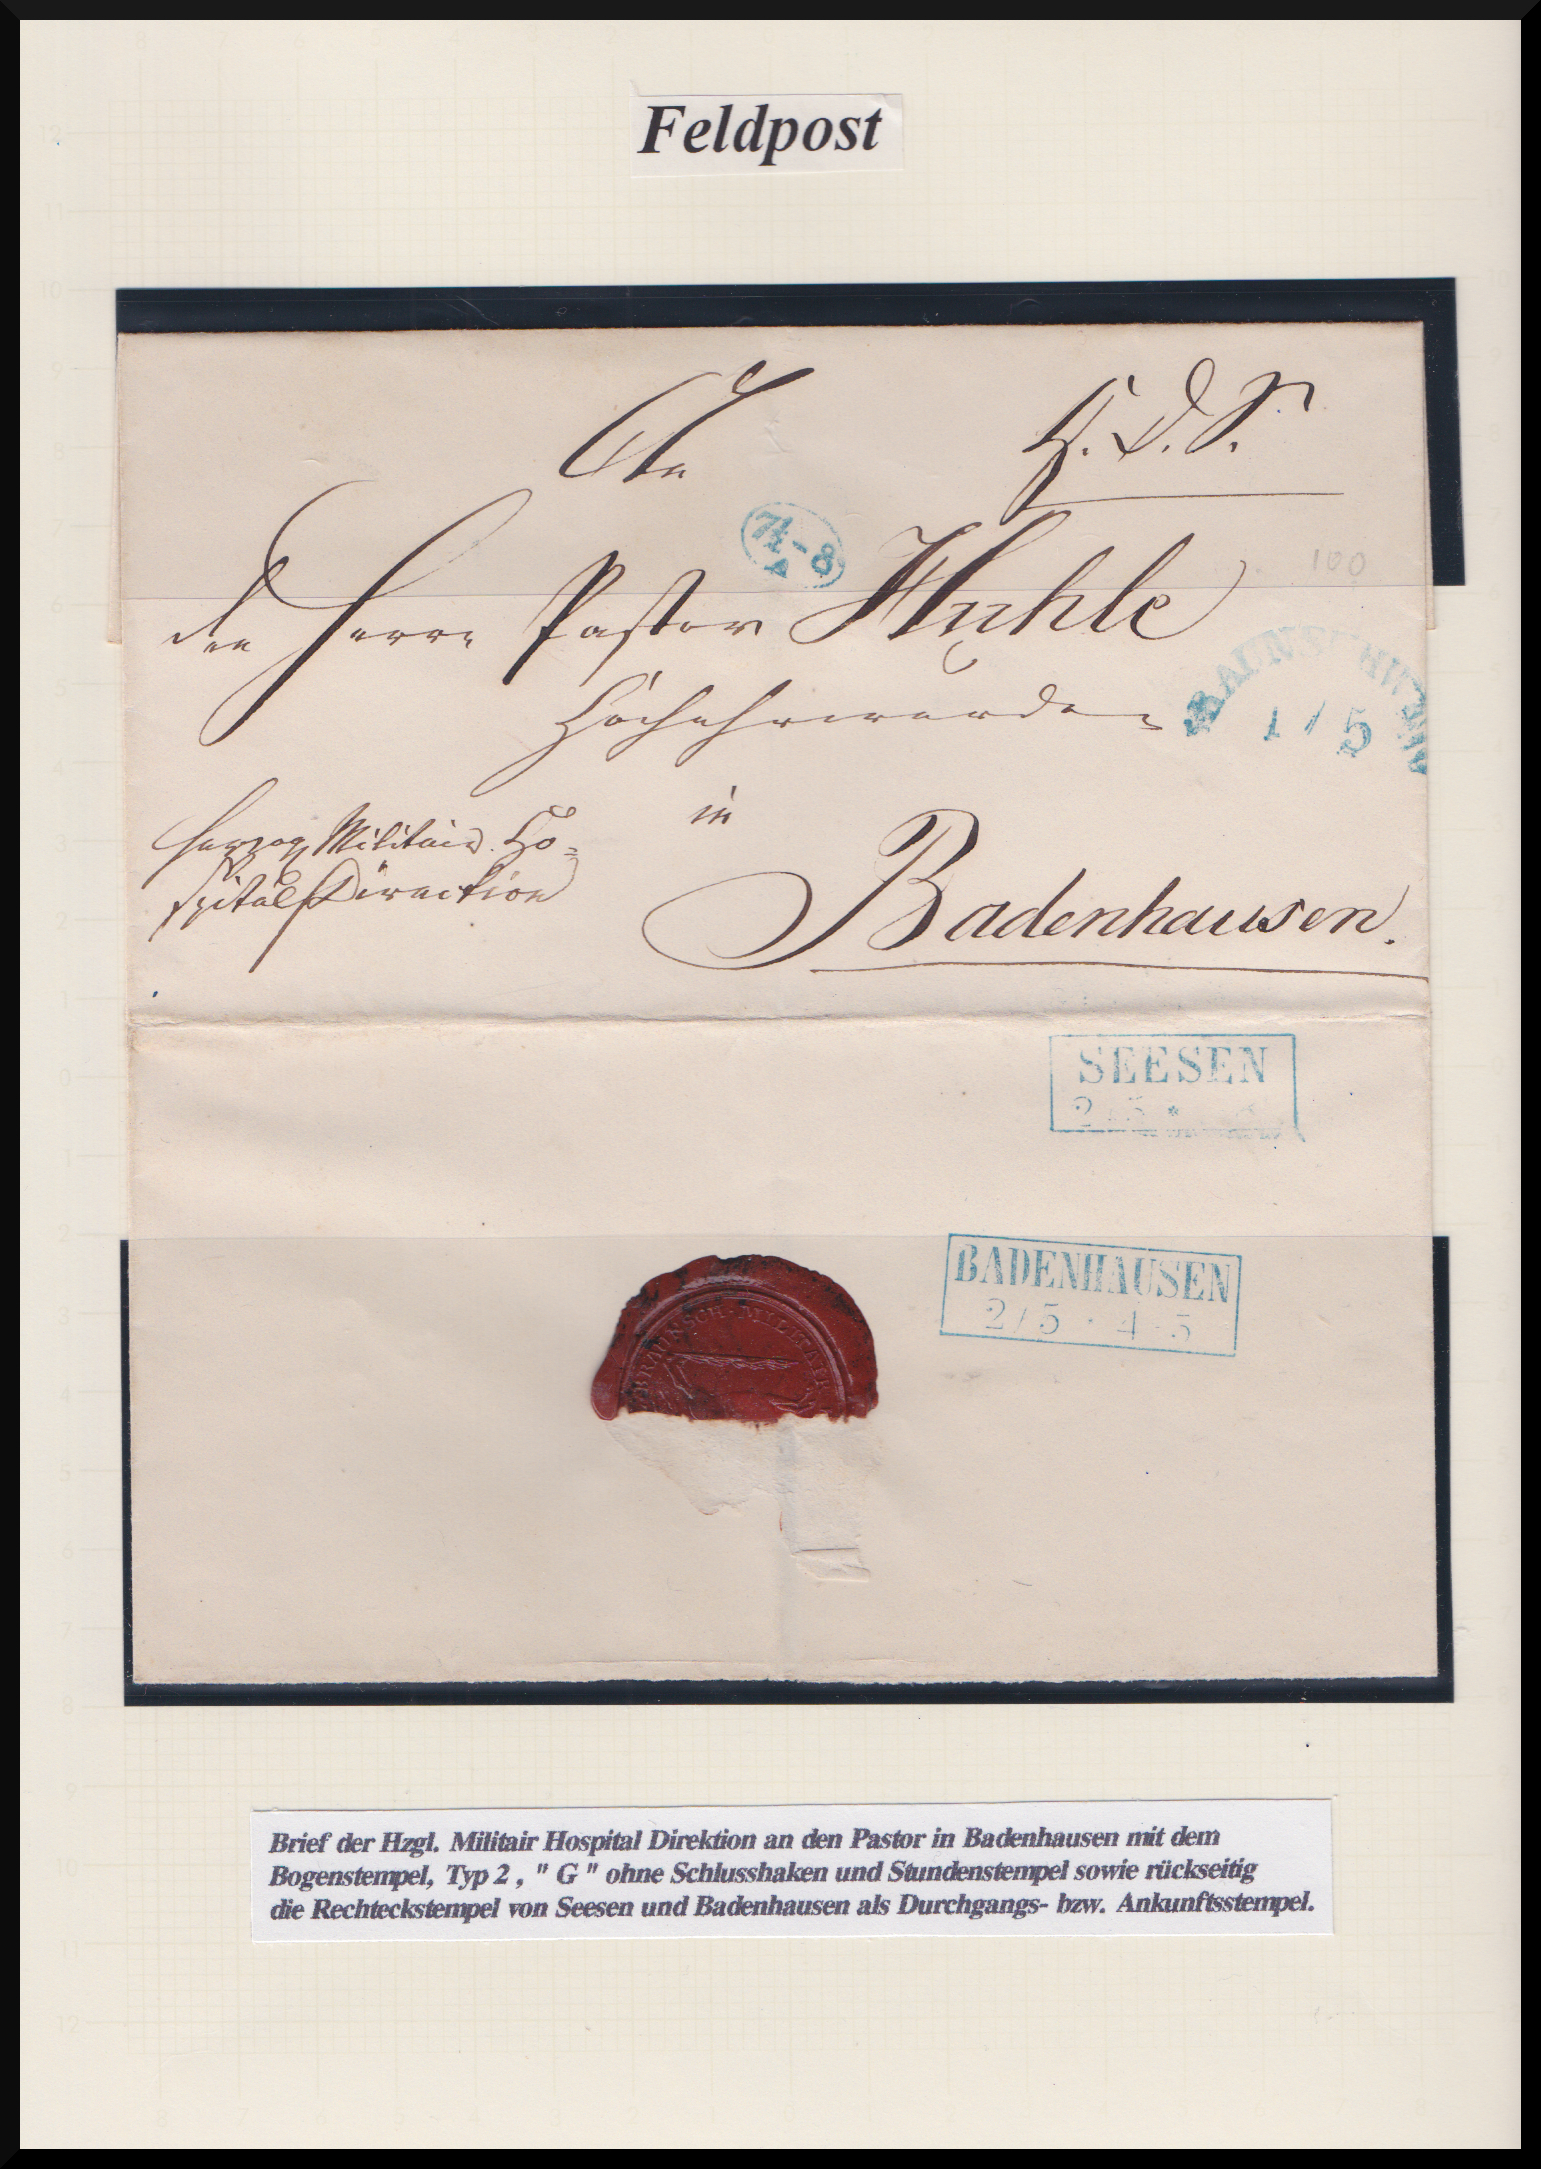 Feldpost
An
H. D. S.
7½-8
A
den Herrn Pastor Huhle
100
BRAUNSCHWEIG
1/5
Hochehrwürden
in
Herzog. Militair. Ho-
spital Direction
Badenhausen.
SEESEN
2/5 *
BADENHAUSEN
2/5 · 4-5
BRAUNSCH. MILITAIR
Brief der Hzgl. Militair Hospital Direktion an den Pastor in Badenhausen mit dem
Bogenstempel, Typ 2 , " G " ohne Schlusshaken und Stundenstempel sowie rückseitig
die Rechteckstempel von Seesen und Badenhausen als Durchgangs- bzw. Ankunftsstempel.